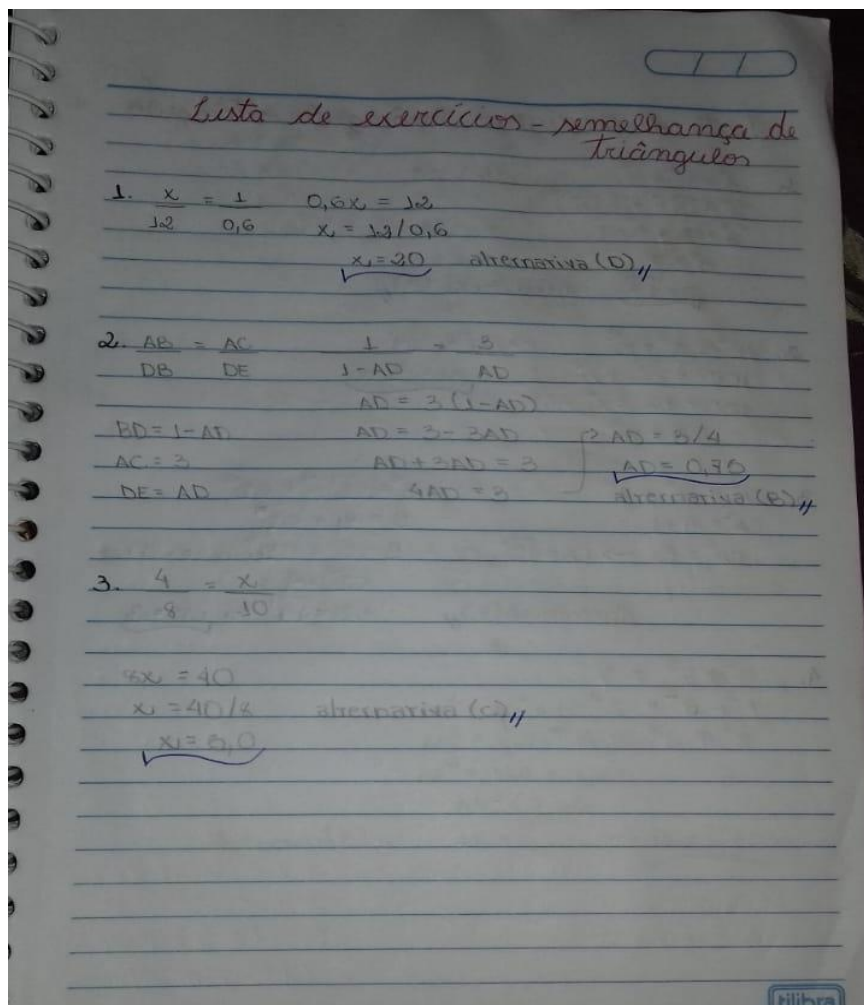 Lista de exercícios - semelhança de
triângulos
1. x/12 = 1/0,6 0,6x = 12
x = 12/0,6
x = 20 alternativa (D)
2. AB/DB = AC/DE 1/1-AD = 3/AD
AD = 3(1-AD)
BD = 1-AD AD = 3-3AD AD = 3/4
AC = 3 AD+3AD = 3
DE = AD 4AD = 3 alternativa (B)
3. 4/8 = x/10
8x = 40
x = 40/8 alternativa (C)
x = 5,0
tilibra